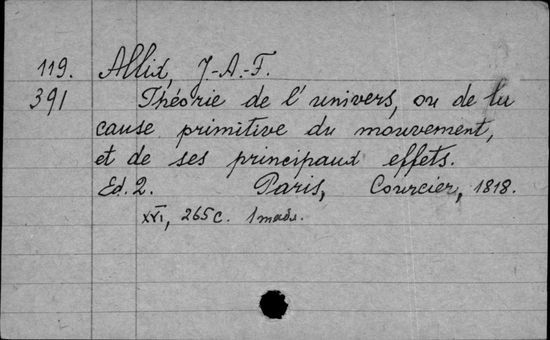 119. Allix, J.-A.-F.
391 Théorie de l'univers, ou de la
cause primitive du mouvement,
et de ses principaux effets.
Ed. 2. Paris, Courcier, 1818.
XVI, 265 c.